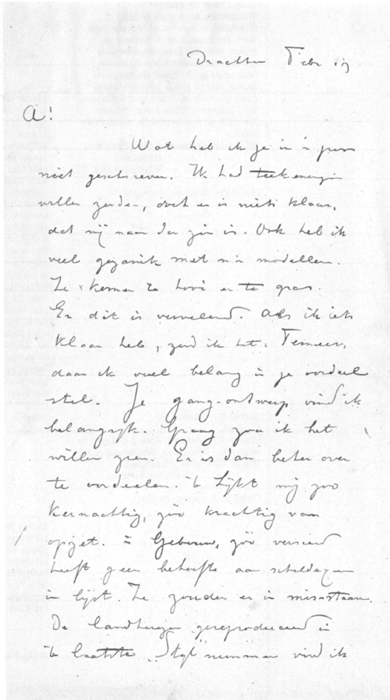 Drachten Febr 19
A!
Wat heb ik je in 'n
niet geschreven. Ik had teekeningen
willen zenden, doch er is niets klaar,
dat mij naar den zin is. Ook heb ik
veel gezanik met m'n modellen.
Ze komen zo hooi en te gras.
En dit is vervelend. Als ik iets
klaar heb, zend ik het. Temeer,
daar ik veel belang in je oordeel
stel. Je gang-ontwerp vind ik
belangrijk. Graag zou ik het
willen zien. Er is dan beter over
te oordeelen. 't Lijkt mij zoo
kernachtig, zóó krachtig van
opzet. 'n Gebouw, zóó
heeft geen behoefte aan schilderijen
in lijst. Ze zouden er in misstaan.
De gereproduceerd in
't laatste Stijl nummer vind ik